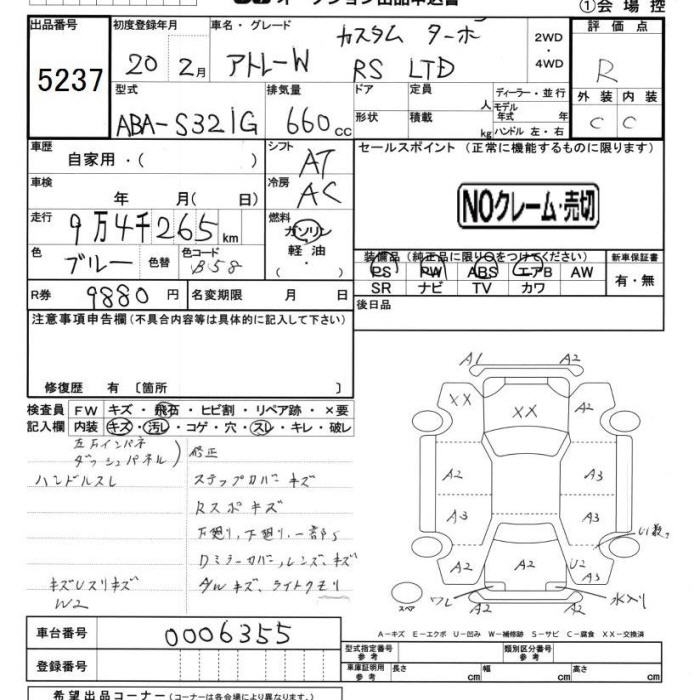 オークション出品申込書
①会場控
出品番号 初度登録年月 車名・グレード カスタム ターボ 2WD ・ 4WD 評価点
5237 20 2月 アトレーW RS LTD R
型式 排気量 ドア 定員 人 ディーラー・並行 外装 内装
ABA-S321G 660cc 形状 積載 kg モデル年式 年 ハンドル 左・右 C C
車歴 自家用・( ) シフト AT セールスポイント (正常に機能するものに限ります)
車検 年 月( 日) 冷房 AC
NOクレーム・売切
走行 9万4千265km 燃料 ガソリン 軽油 ・( )
色 ブルー 色替 色コード B58
装備品 (純正品に限り○をつけてください) 新車保証書
PS PW ABS エアB AW 有・無
SR ナビ TV カワ
R券 9880円 名変期限 月 日 後日品
注意事項申告欄(不具合内容等は具体的に記入して下さい)
修復歴 有 〔箇所 〕
検査員 FW キズ・飛石・ヒビ割・リペア跡・×要
記入欄 内装 キズ・汚レ・コゲ・穴・スレ・キレ・破レ
左右インパネ
ダッシュパネル) 修正
ハンドルスレ ステップカバーキズ
Rスポキズ
下廻り、下廻り、一部S
Dミラーカバー、レンズ、キズ
キズUスリキズ ダルキズ、ライトクモリ
W2
A1 A2
XX XX A2
A2 A3
A3 A3
A2 U2 A3
ワレ A2 水入り
スペア
A-キズ E-エクボ U-凹み W-補修跡 S-サビ C-腐食 XX-交換済
車台番号 0006355
型式指定番号 参考 類別区分番号 参考
登録番号 車庫証明用 参考 長さ cm 幅 cm 高さ cm
希望出品コーナー(コーナーは各会場により異なります)